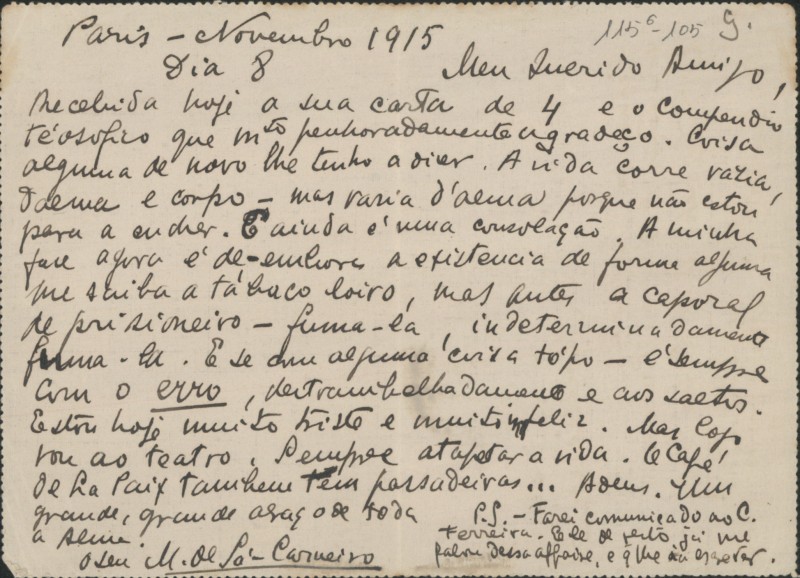 115⁶-105 G.
Paris - Novembro 1915
Dia 8 Meu Querido Amigo,
Recebida hoje a sua carta de 4 e o Compendio
téosofico que mto penhoradamente agradeço. Coisa
alguma de novo lhe tenho a dizer. A vida corre vazia,
d'alma e corpo - mas vazia d'alma porque não estou
para a encher. E ainda é uma consolação. A minha
fase agora é de - embora a existencia de forma alguma
me saiba a tábaco loiro, mas antes a caporal
de prisioneiro - fuma-la, indeterminadamente
fuma-la. E se com alguma coisa tópo - é sempre
com o erro, destrambelhadamente e aos saltos.
Estou hoje muito triste e muito infeliz. Mas logo
vou ao teatro. Sempre atapetar a vida. O Café
de La Paix tambem tem passadeiras... Adeus. Um
grande, grande abraço de toda
a Alma.
o seu M. de Sá-Carneiro
P.S. - Farei comunicado ao C.
Ferreira. Ele de resto, já me
falou dessa affaire, e q lhe ia escrever.